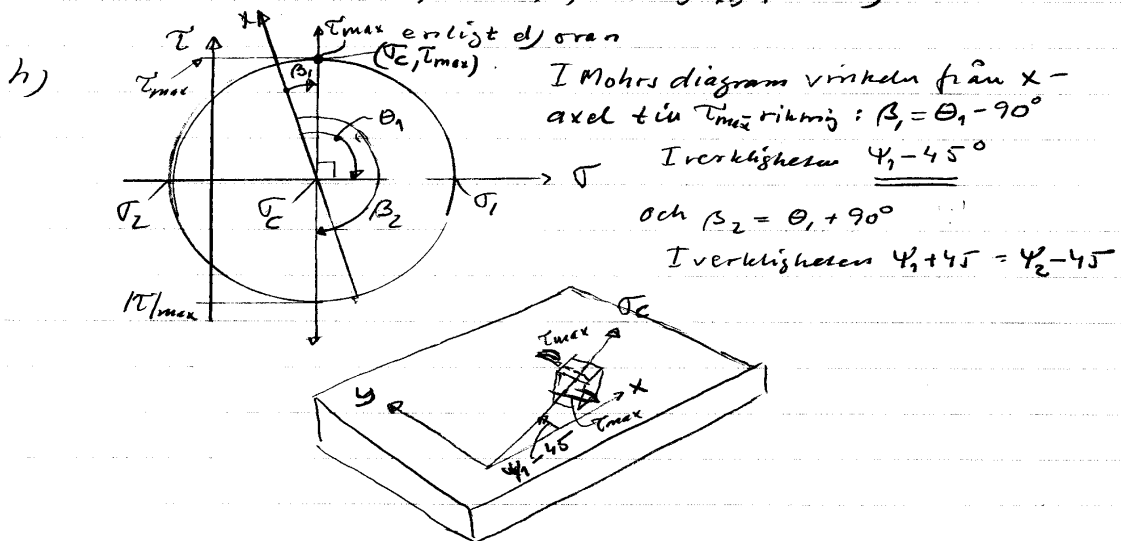 h)
x
τ
τmax
τmax enligt d) ovan
(σc, τmax).
β₁
θ₁
β₂
σ₂
σc
σ₁
σ
|τ|max
I Mohrs diagram vinkeln från x-
axel till τmax-riktning : β₁ = θ₁ - 90°
I verkligheten ψ₁ - 45°
och β₂ = θ₁ + 90°
I verkligheten ψ₁ + 45 = ψ₂ - 45
σc
τmax
x
y
τmax
ψ₁ - 45